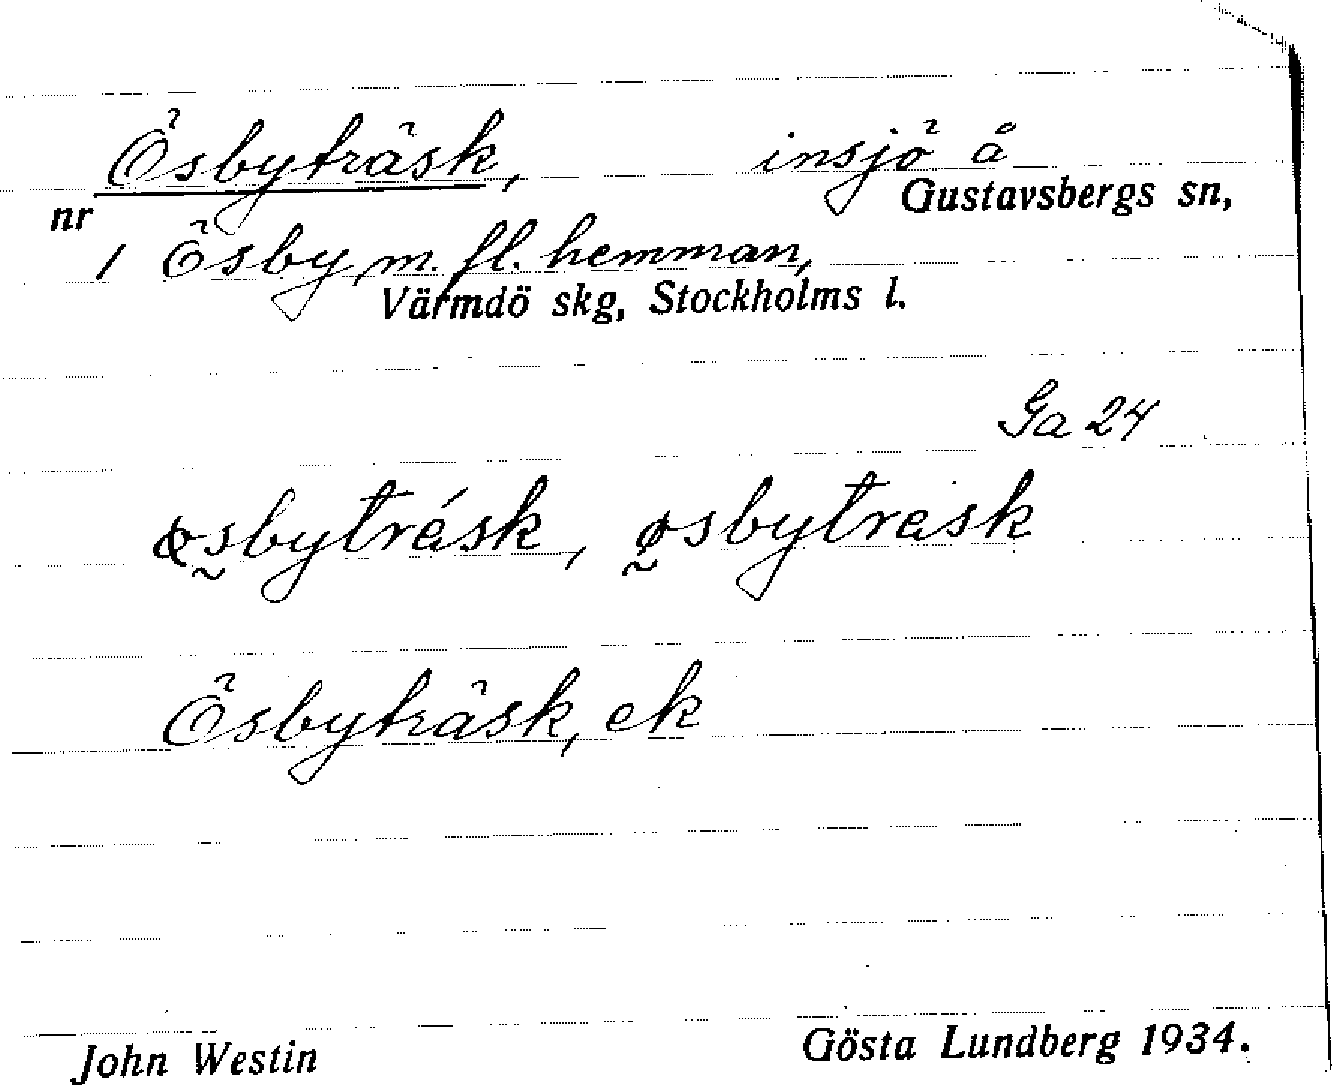 Ösbyträsk, insjö å
nr Gustavsbergs sn,
1 Ösby m. fl. hemman,
Värmdö skg, Stockholms l.
Ga 24
øsbyträsk, øsbytrask
Ösbyträsk, ek
John Westin Gösta Lundberg 1934.